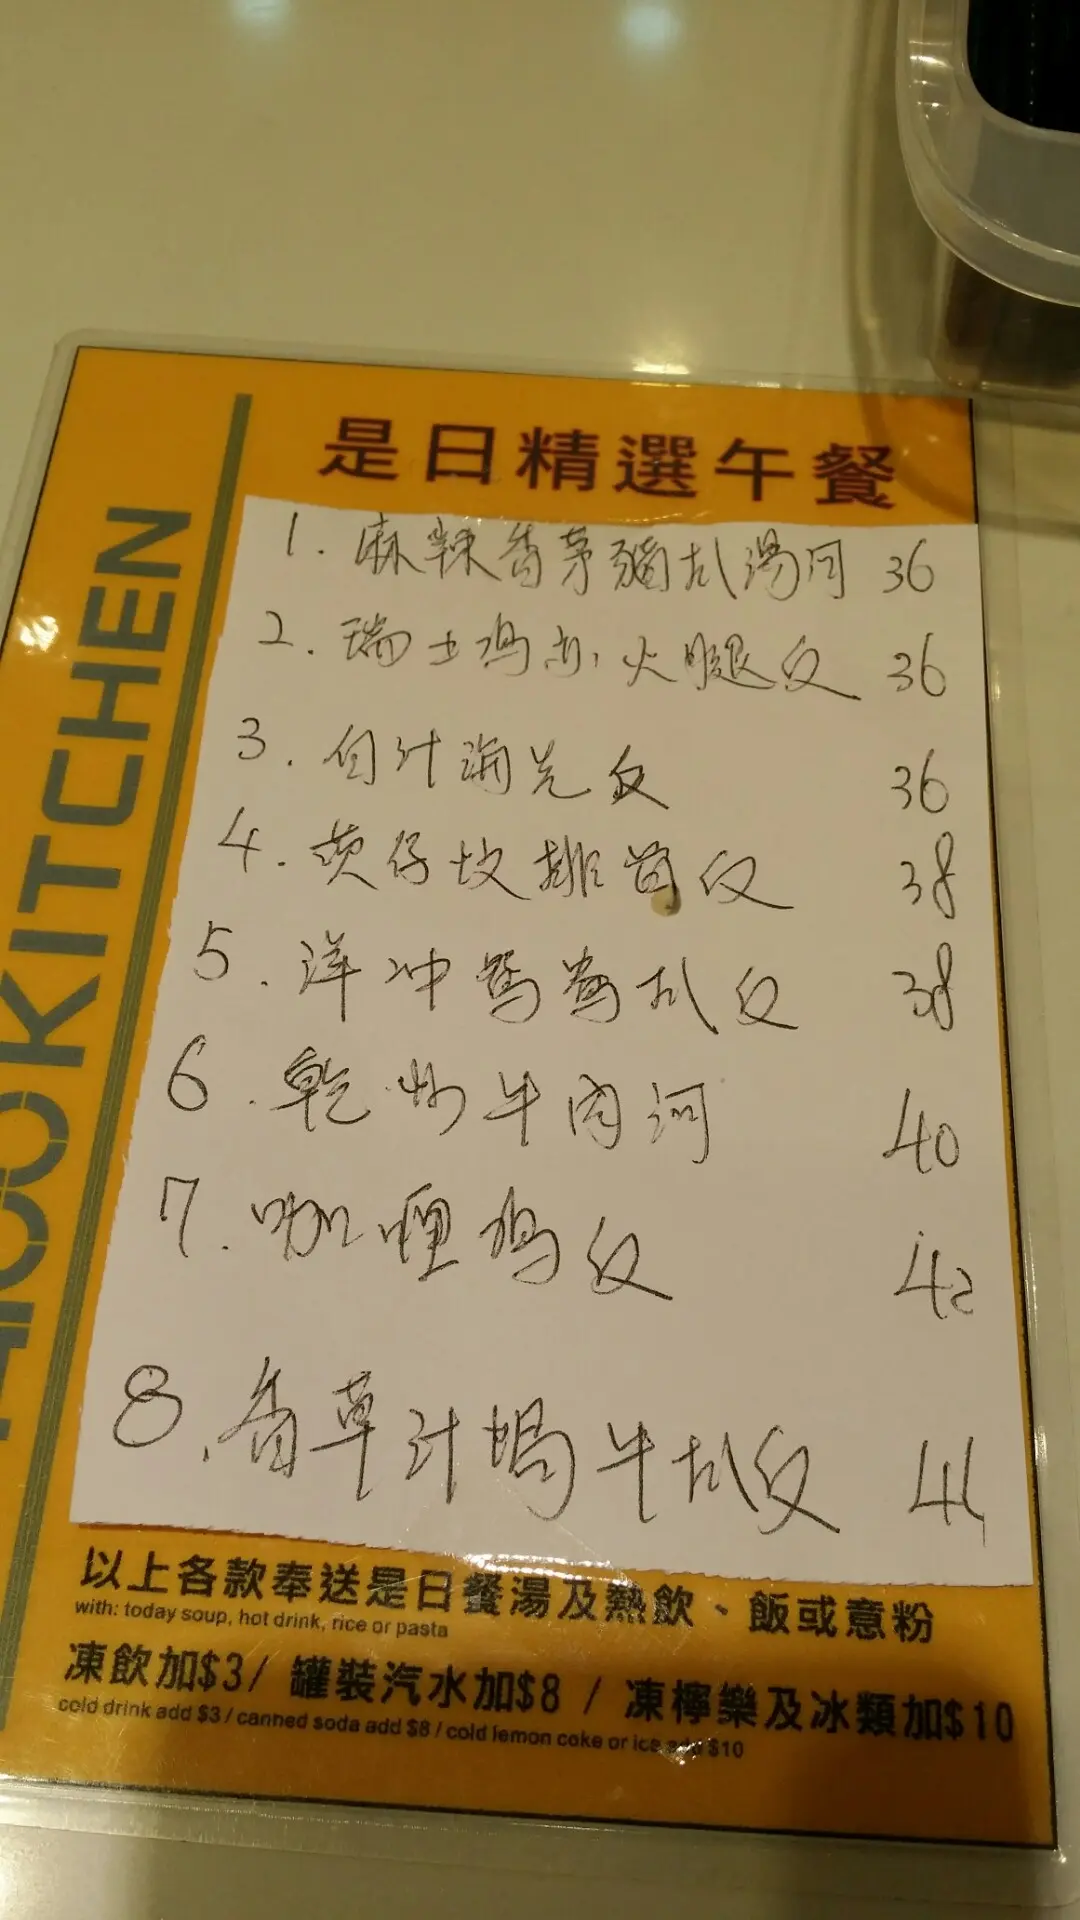 是日精選午餐
1. 麻辣香茅豬扒湯河 36
2. 瑞士鸡亦火腿反 36
3. 白汁海先反 36
4. 茨仔炆排骨反 38
5. 洋冲鴛鴦扒反 38
6. 乾炒牛肉河 40
7. 咖喱鸡反 42
8. 香草汁焗牛扒反 44
以上各款奉送是日餐湯及熱飲、飯或意粉
with: today soup, hot drink, rice or pasta
凍飲加$3/ 罐裝汽水加$8 / 凍檸樂及冰類加$10
cold drink add $3 / canned soda add $8 / cold lemon coke or ice add $10
KITCHEN